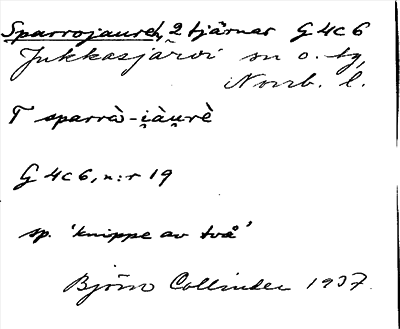 Sparrojaureh, 2 tjärnar G 4c 6
Jukkasjärvi sn o. tg,
Norrb. l.
T sparrà-i̯àu̯rè
G 4c 6, n:r 19
sp. 'knippe av två'
Björn Collinder 1937.